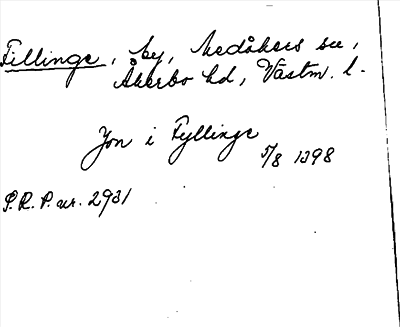 Fillinge, by, Medåkers sn,
Åkerbo hd, Västm. l.
Jon i Fyllinge
5/8 1398
S.R.P. nr. 2931